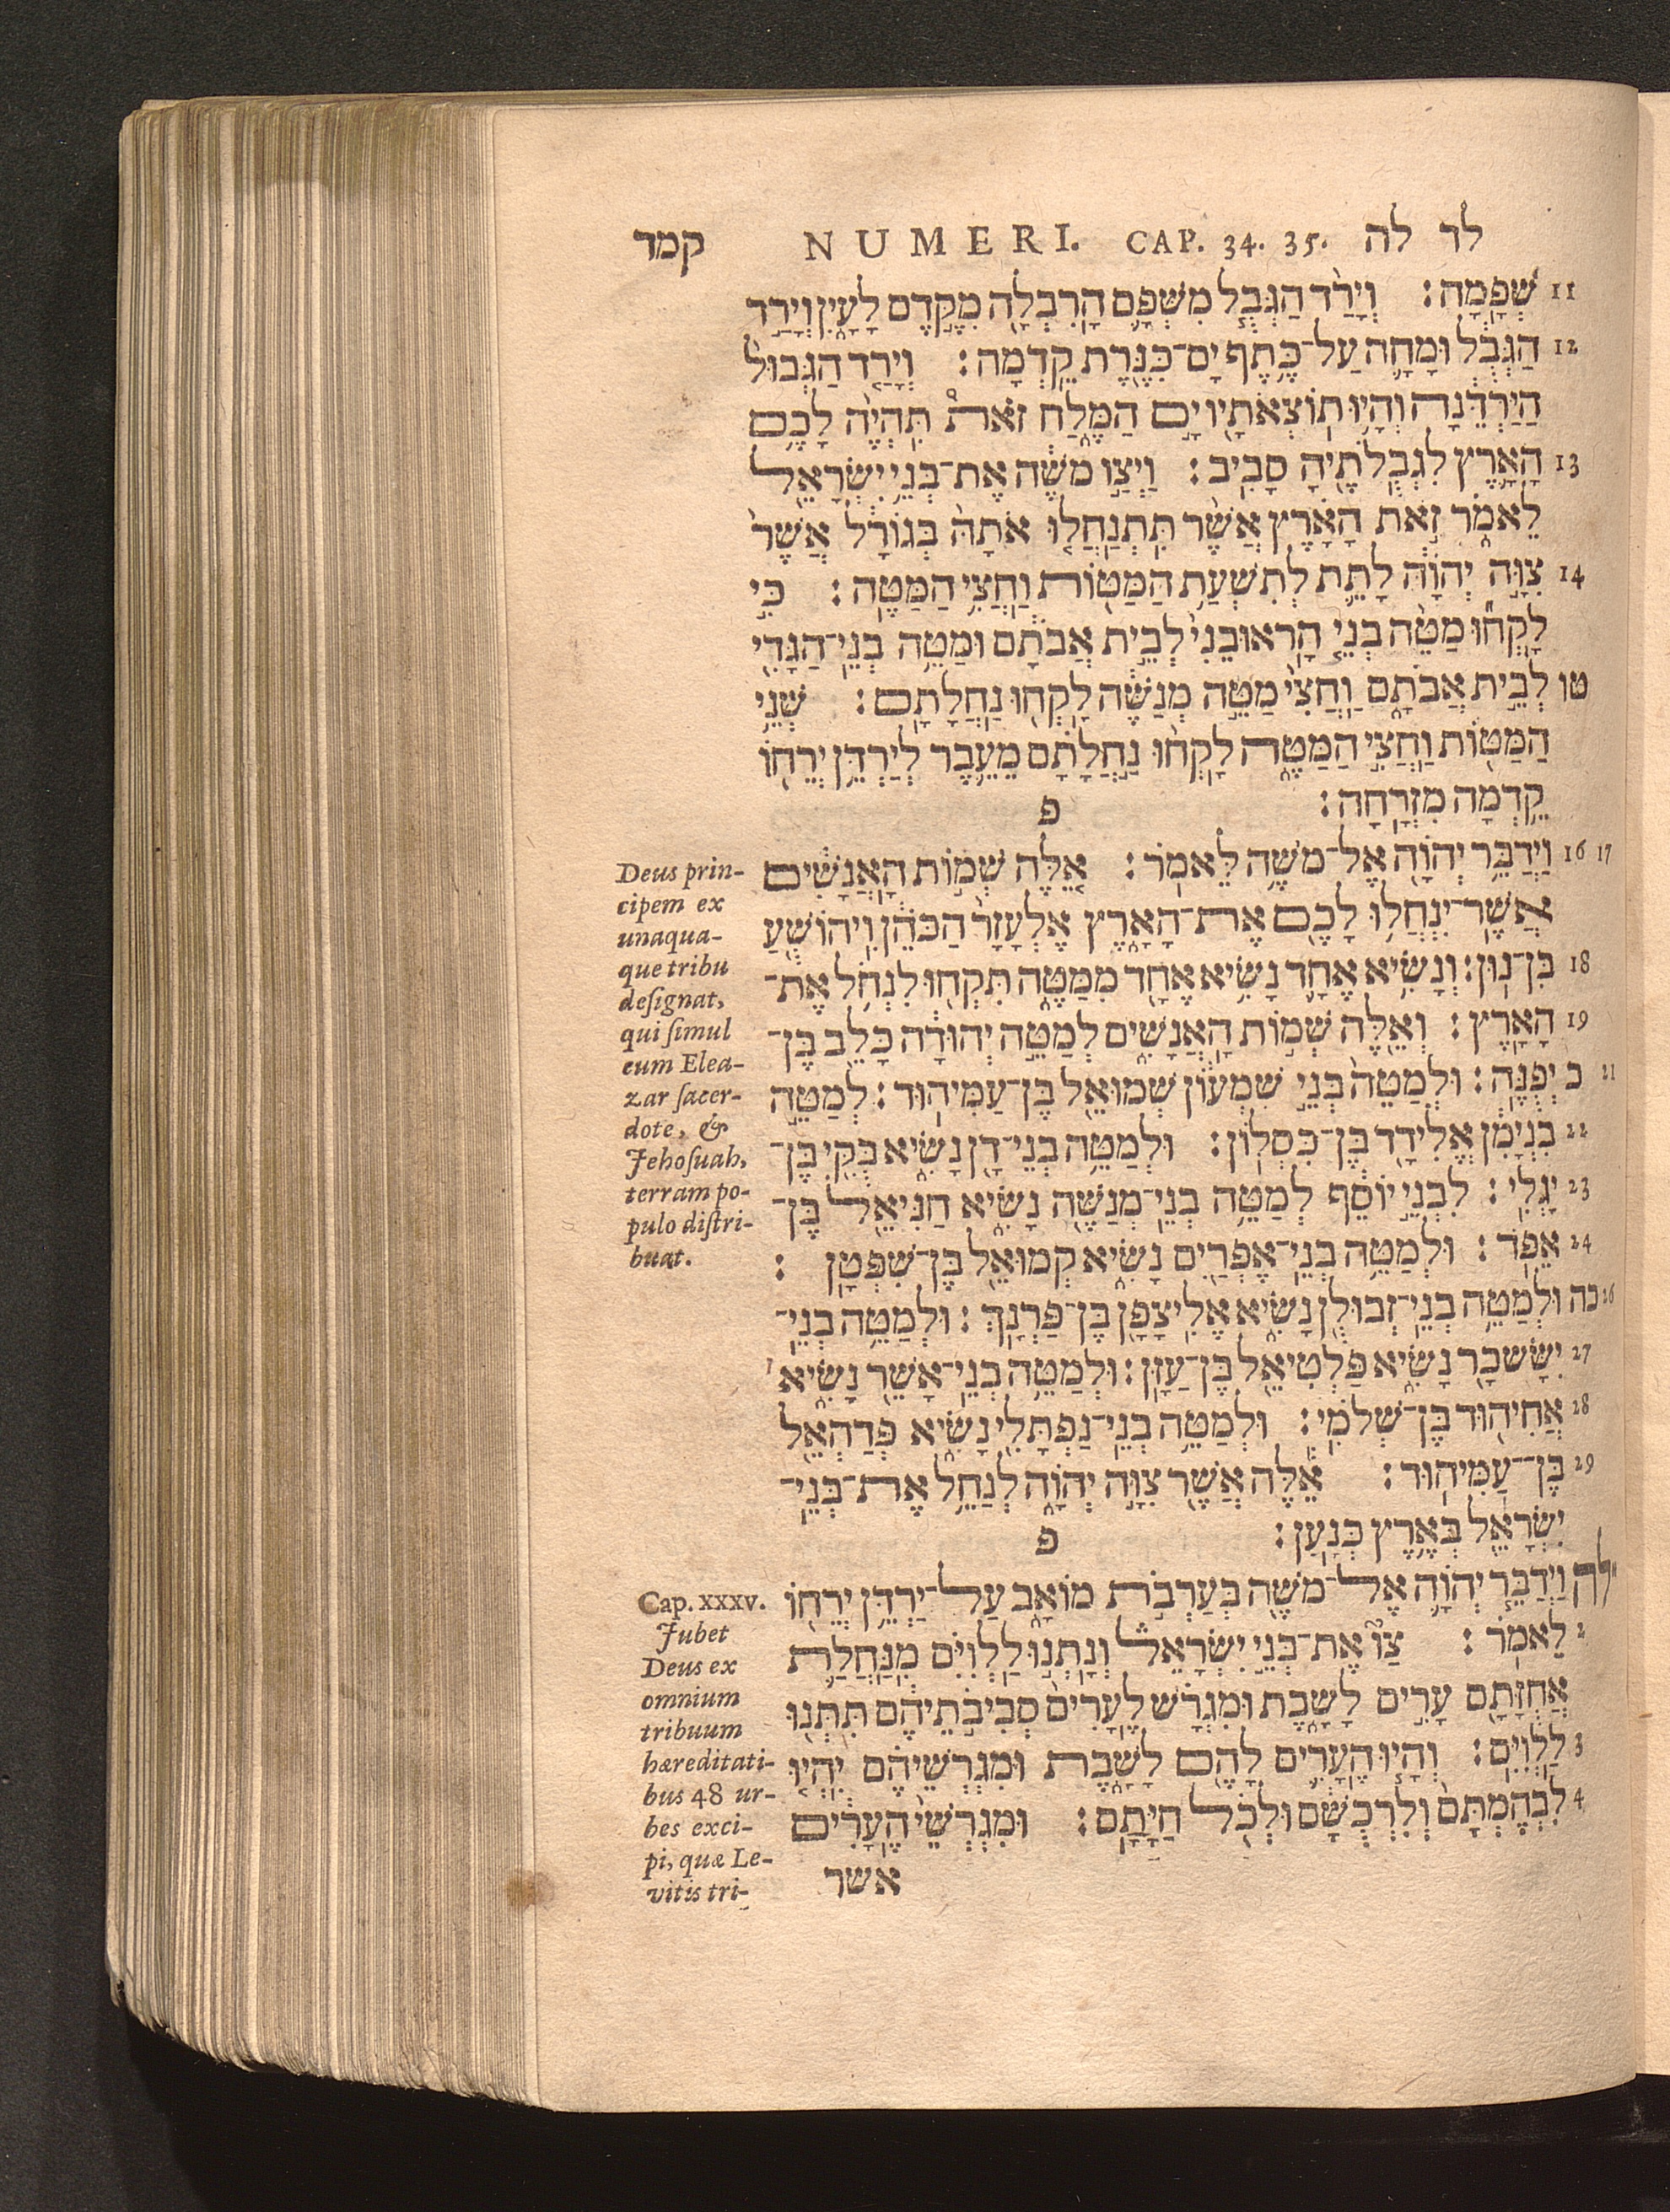 קמד NUMERI. CAP. 34. 35. לד לה
11 שְׁפָמָה׃ וְיָרַד הַגְּבֻל מִשְּׁפָם הָרִבְלָה מִקֶּדֶם לָעָיִן וְיָרַד
12 הַגְּבֻל וּמָחָה עַל־כֶּתֶף יָם־כִּנֶּרֶת קֵדְמָה׃ וְיָרַד הַגְּבוּל
הַיַּרְדֵּנָה וְהָיוּ תוֹצְאֹתָיו יָם הַמֶּלַח זֹאת תִּהְיֶה לָכֶם
13 הָאָרֶץ לִגְבֻלֹתֶיהָ סָבִיב׃ וַיְצַו מֹשֶׁה אֶת־בְּנֵי יִשְׂרָאֵל
לֵאמֹר זֹאת הָאָרֶץ אֲשֶׁר תִּתְנַחֲלוּ אֹתָהּ בְּגוֹרָל אֲשֶׁר
14 צִוָּה יְהוָֹה לָתֵת לְתִשְׁעַת הַמַּטּוֹת וַחֲצִי הַמַּטֶּה׃ כִּי
לָקְחוּ מַטֵּה בְנֵי הָראוּבֵנִי לְבֵית אֲבֹתָם וּמַטֵּה בְנֵי־הַגָּדִי
טו לְבֵית אֲבֹתָם וַחֲצִי מַטֵּה מְנַשֶּׁה לָקְחוּ נַחֲלָתָם׃ שְׁנֵי
הַמַּטּוֹת וַחֲצִי הַמַּטֶּה לָקְחוּ נַחֲלָתָם מֵעֵבֶר לְיַרְדֵּן יְרֵחוֹ
קֵדְמָה מִזְרָחָה׃ פ
16 17 וַיְדַבֵּר יְהוָֹה אֶל־מֹשֶׁה לֵּאמֹר׃ אֵלֶּה שְׁמוֹת הָאֲנָשִׁים
אֲשֶׁר־יִנְחֲלוּ לָכֶם אֶת־הָאָרֶץ אֶלְעָזָר הַכֹּהֵן וִיהוֹשֻׁעַ
18 בִּן־נוּן׃ וְנָשִׂיא אֶחָד נָשִׂיא אֶחָד מִמַּטֶּה תִּקְחוּ לִנְחֹל אֶת־
19 הָאָרֶץ׃ וְאֵלֶּה שְׁמוֹת הָאֲנָשִׁים לְמַטֵּה יְהוּדָה כָּלֵב בֶּן־
כ 21 יְפֻנֶּה׃ וּלְמַטֵּה בְּנֵי שִׁמְעוֹן שְׁמוּאֵל בֶּן־עַמִּיהוּד׃ לְמַטֵּה
22 בִנְיָמִן אֱלִידָד בֶּן־כִּסְלוֹן׃ וּלְמַטֵּה בְנֵי־דָן נָשִׂיא בֻּקִּי בֶּן־
23 יָגְלִי׃ לִבְנֵי יוֹסֵף לְמַטֵּה בְנֵי־מְנַשֶּׁה נָשִׂיא חַנִּיאֵל בֶּן־
24 אֵפֹד׃ וּלְמַטֵּה בְנֵי־אֶפְרַיִם נָשִׂיא קְמוּאֵל בֶּן־שִׁפְטָן׃
כה 26 וּלְמַטֵּה בְנֵי־זְבוּלֻן נָשִׂיא אֱלִיצָפָן בֶּן־פַּרְנָךְ׃ וּלְמַטֵּה בְנֵי־
27 יִשָּׂשכָר נָשִׂיא פַּלְטִיאֵל בֶּן־עַזָּן׃ וּלְמַטֵּה בְנֵי־אָשֵׁר נָשִׂיא
28 אֲחִיהוּד בֶּן־שְׁלֹמִי׃ וּלְמַטֵּה בְנֵי־נַפְתָּלִי נָשִׂיא פְּדַהְאֵל
29 בֶּן־עַמִּיהוּד׃ אֵלֶּה אֲשֶׁר צִוָּה יְהוָֹה לְנַחֵל אֶת־בְּנֵי־
יִשְׂרָאֵל בְּאֶרֶץ כְּנָעַן׃ פ
לה וַיְדַבֵּר יְהוָֹה אֶל־מֹשֶׁה בְּעַרְבֹת מוֹאָב עַל־יַרְדֵּן יְרֵחוֹ
2 לֵאמֹר׃ צַו אֶת־בְּנֵי יִשְׂרָאֵל וְנָתְנוּ לַלְוִיִּם מִנַּחֲלַת
אֲחֻזָּתָם עָרִים לָשָׁבֶת וּמִגְרָשׁ לֶעָרִים סְבִיבֹתֵיהֶם תִּתְּנוּ
3 לַלְוִיִּם׃ וְהָיוּ הֶעָרִים לָהֶם לָשָׁבֶת וּמִגְרְשֵׁיהֶם יִהְיוּ
4 לִבְהֶמְתָּם וְלִרְכֻשָׁם וּלְכֹל חַיָּתָם׃ וּמִגְרְשֵׁי הֶעָרִים
אשר
Deus prin-
cipem ex
unaqua-
que tribu
deſignat,
qui ſimul
cum Elea-
zar ſacer-
dote, &
Jehoſuah,
terram po-
pulo diſtri-
buat.
Cap. XXXV.
Jubet
Deus ex
omnium
tribuum
hæreditati-
bus 48 ur-
bes exci-
pi, quæ Le-
vitis tri-